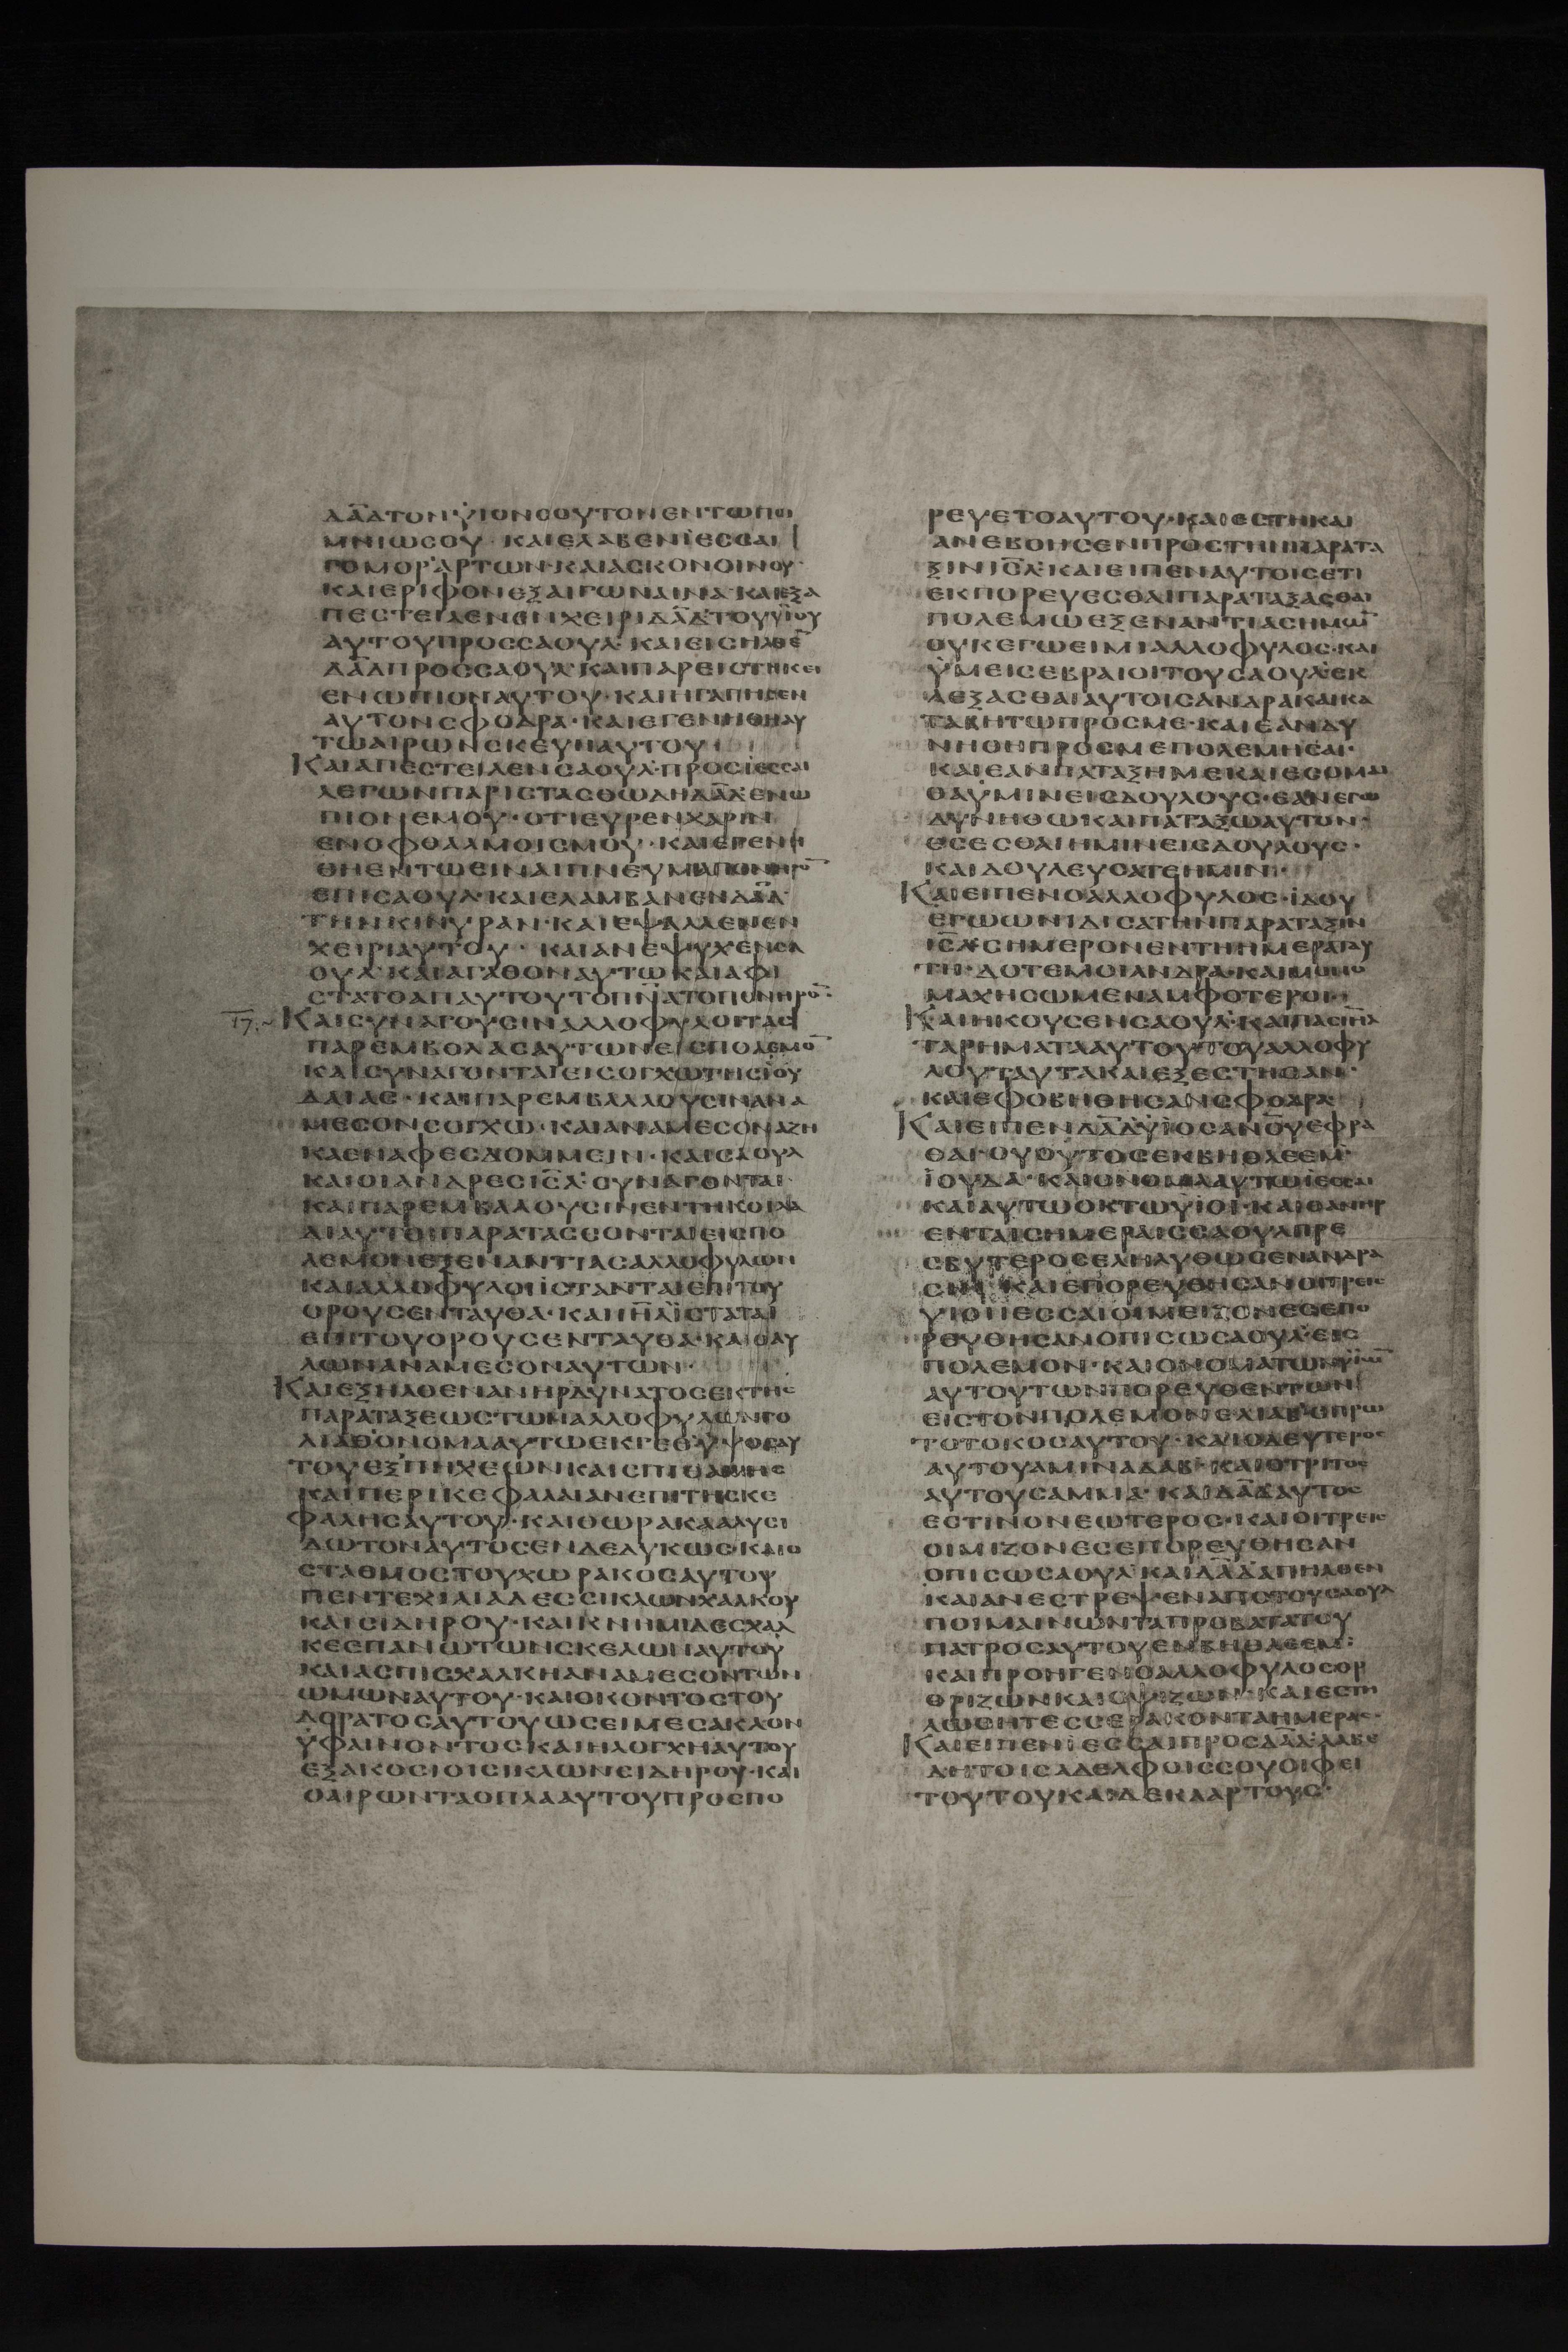 ΔΑΔΤΟΝΥΙΟΝΣΟΥΤΟΝΕΝΤΩΠΟΙ
ΜΝΙΩΣΟΥ· ΚΑΙΕΛΑΒΕΝΙΕΣΣΑΙ
ΓΟΜΟΡΑΡΤΩΝ·ΚΑΙΑΣΚΟΝΟΙΝΟΥ·
ΚΑΙΕΡΙΦΟΝΕΞΑΙΓΩΝΑΙΝΑ·ΚΑΙΕΞΑ
ΠΕΣΤΕΙΛΕΝΕΝΧΕΙΡΙΔΑΔΤΟΥΥΙΟΥ
ΑΥΤΟΥΠΡΟΣΣΑΟΥΛ·ΚΑΙΕΙΣΗΛΘΕ̅
ΔΑΔΠΡΟΣΣΑΟΥΛ·ΚΑΙΠΑΡΕΙΣΤΗΚΕΙ
ΕΝΩΠΙΟΝΑΥΤΟΥ·ΚΑΙΗΓΑΠΗΣΕΝ
ΑΥΤΟΝΣΦΟΔΡΑ·ΚΑΙΕΓΕΝΗΘΗΑΥ
ΤΩΑΙΡΩΝΣΚΕΥΗΑΥΤΟΥ
ΚΑΙΑΠΕΣΤΕΙΛΕΝΣΑΟΥΛ·ΠΡΟΣΙΕΣΣΑΙ
ΛΕΓΩΝΠΑΡΙΣΤΑΣΘΩΔΗΔΑΔΕΝΩ
ΠΙΟΝΕΜΟΥ·ΟΤΙΕΥΡΕΝΧΑΡΙΝ
ΕΝΟΦΘΑΛΜΟΙΣΜΟΥ·ΚΑΙΕΓΕΝΗ
ΘΗΕΝΤΩΕΙΝΑΙΠΝΕΥΜΑΠΟΝΗΡΟ̅
ΕΠΙΣΑΟΥΛ·ΚΑΙΕΛΑΜΒΑΝΕΝΔΑΔ
ΤΗΝΚΙΝΥΡΑΝ·ΚΑΙΕΨΑΛΛΕΝΕΝ
ΧΕΙΡΙΑΥΤΟΥ· ΚΑΙΑΝΕΨΥΧΕΝΣΑ
ΟΥΛ·ΚΑΙΑΓΑΘΟΝΑΥΤΩΚΑΙΑΦΙ
ΣΤΑΤΟΑΠΑΥΤΟΥΤΟΠΝ̅ΑΤΟΠΟΝΗΡΟ̅·
17. ΚΑΙΣΥΝΑΓΟΥΣΙΝΑΛΛΟΦΥΛΟΙΤΑΣ
ΠΑΡΕΜΒΟΛΑΣΑΥΤΩΝΕΙΣΠΟΛΕΜΟ̅
ΚΑΙΣΥΝΑΓΟΝΤΑΙΕΙΣΟΓΧΩΤΗΣΙΟΥ
ΔΑΙΑΣ·ΚΑΙΠΑΡΕΜΒΑΛΛΟΥΣΙΝΑΝΑ
ΜΕΣΟΝΣΟΓΧΩ·ΚΑΙΑΝΑΜΕΣΟΝΑΖΗ
ΚΑΕΝΑΦΕΣΔΟΜΜΕΙΝ·ΚΑΙΣΑΟΥΛ
ΚΑΙΟΙΑΝΔΡΕΣΙΣ̅Λ·ΣΥΝΑΓΟΝΤΑΙ·
ΚΑΙΠΑΡΕΜΒΑΛΛΟΥΣΙΝΕΝΤΗΚΟΙΛΑ
ΔΙΑΥΤΟΙΠΑΡΑΤΑΣΣΟΝΤΑΙΕΙΣΠΟ
ΛΕΜΟΝΕΞΕΝΑΝΤΙΑΣΑΛΛΟΦΥΛΩΝ
ΚΑΙΑΛΛΟΦΥΛΟΙΙΣΤΑΝΤΑΙΕΠΙΤΟΥ
ΟΡΟΥΣΕΝΤΑΥΘΑ·ΚΑΙΙΗ̅ΛΙΣΤΑΤΑΙ
ΕΠΙΤΟΥΟΡΟΥΣΕΝΤΑΥΘΑ·ΚΑΙΟΑΥ
ΛΩΝΑΝΑΜΕΣΟΝΑΥΤΩΝ·
ΚΑΙΕΞΗΛΘΕΝΑΝΗΡΔΥΝΑΤΟΣΕΚΤΗΣ
ΠΑΡΑΤΑΞΕΩΣΤΩΝΑΛΛΟΦΥΛΩΝΓΟ
ΛΙΑΘΟΝΟΜΑΑΥΤΩΕΚΓΕΘ·ΥΨΟΣΑΥ
ΤΟΥΕΞΠΗΧΕΩΝΚΑΙΣΠΙΘΑΜΗΣ
ΚΑΙΠΕΡΙΚΕΦΑΛΑΙΑΝΕΠΙΤΗΣΚΕ
ΦΑΛΗΣΑΥΤΟΥ·ΚΑΙΘΩΡΑΚΑΑΛΥΣΙ
ΔΩΤΟΝΑΥΤΟΣΕΝΔΕΔΥΚΩΣ·ΚΑΙΟ
ΣΤΑΘΜΟΣΤΟΥΧΩΡΑΚΟΣΑΥΤΟΥ
ΠΕΝΤΕΧΙΛΙΑΔΕΣΣΙΚΛΩΝΧΑΛΚΟΥ
ΚΑΙΣΙΔΗΡΟΥ·ΚΑΙΚΝΗΜΙΔΕΣΧΑΛ
ΚΕΣΠΑΝΩΤΩΝΣΚΕΛΩΝΑΥΤΟΥ
ΚΑΙΑΣΠΙΣΧΑΛΚΗΑΝΑΜΕΣΟΝΤΩΝ
ΩΜΩΝΑΥΤΟΥ·ΚΑΙΟΚΟΝΤΟΣΤΟΥ
ΔΟΡΑΤΟΣΑΥΤΟΥΩΣΕΙΜΕΣΑΚΛΟΝ
ΥΦΑΙΝΟΝΤΟΣΚΑΙΗΛΟΓΧΗΑΥΤΟΥ
ΕΞΑΚΟΣΙΟΙΣΙΚΛΩΝΣΙΔΗΡΟΥ·ΚΑΙ
ΟΑΙΡΩΝΤΑΟΠΛΑΑΥΤΟΥΠΡΟΕΠΟ
ΡΕΥΕΤΟΑΥΤΟΥ·ΚΑΙΕΣΤΗΚΑΙ
ΑΝΕΒΟΗΣΕΝΠΡΟΣΤΗΝΠΑΡΑΤΑ
ΞΙΝΙΣ̅Λ·ΚΑΙΕΙΠΕΝΑΥΤΟΙΣΕΤΙ
ΕΚΠΟΡΕΥΕΣΘΑΙΠΑΡΑΤΑΞΑΣΘΑΙ
ΠΟΛΕΜΩΕΞΕΝΑΝΤΙΑΣΗΜΩ̅
ΟΥΚΕΓΩΕΙΜΙΑΛΛΟΦΥΛΟΣ·ΚΑΙ
ΥΜΕΙΣΕΒΡΑΙΟΙΤΟΥΣΑΟΥΛ·ΕΚ
ΛΕΞΑΣΘΑΙΑΥΤΟΙΣΑΝΔΡΑΚΑΙΚΑ
ΤΑΒΗΤΩΠΡΟΣΜΕ·ΚΑΙΕΑΝΔΥ
ΝΗΘΗΠΡΟΣΜΕΠΟΛΕΜΗΣΑΙ·
ΚΑΙΕΑΝΠΑΤΑΞΗΜΕΚΑΙΕΣΟΜΑΙ
ΘΑΥΜΙΝΕΙΣΔΟΥΛΟΥΣ·ΕΑΝΕΓΩ
ΔΥΝΗΘΩΚΑΙΠΑΤΑΞΩΑΥΤΟΝ·
ΕΣΕΣΘΑΙΗΜΙΝΕΙΣΔΟΥΛΟΥΣ·
ΚΑΙΔΟΥΛΕΥΣΑΤΕΗΜΙΝ·
ΚΑΙΕΙΠΕΝΟΑΛΛΟΦΥΛΟΣ·ΙΔΟΥ
ΕΓΩΩΝΙΔΙΣΑΤΗΝΠΑΡΑΤΑΞΙΝ
ΙΣ̅ΛΣΗΜΕΡΟΝΕΝΤΗΗΜΕΡΑΤΑΥ
ΤΗ·ΔΟΤΕΜΟΙΑΝΔΡΑ·ΚΑΙΜΟΝΟ
ΜΑΧΗΣΩΜΕΝΑΜΦΟΤΕΡΟΙ
ΚΑΙΗΚΟΥΣΕΝΣΑΟΥΛ·ΚΑΙΠΑΣΙΗ̅Λ
ΤΑΡΗΜΑΤΑΑΥΤΟΥΤΟΥΑΛΛΟΦΥ
ΛΟΥΤΑΥΤΑΚΑΙΕΞΕΣΤΗΣΑΝ·
ΚΑΙΕΦΟΒΗΘΗΣΑΝΣΦΟΔΡΑ
ΚΑΙΕΙΠΕΝΔΑΔΥΙΟΣΑΝΟ̅ΥΕΦΡΑ
ΘΑΙΟΥΟΥΤΟΣΕΚΒΗΘΛΕΕΜ·
ΙΟΥΔΑ·ΚΑΙΟΝΟΜΑΑΥΤΩΙΕΣΣΑΙ
ΚΑΙΑΥΤΩΟΚΤΩΥΙΟΙ·ΚΑΙΟΑΝΗΡ
ΕΝΤΑΙΣΗΜΕΡΑΙΣΣΑΟΥΛΠΡΕ
ΣΒΥΤΕΡΟΣΕΛΗΛΥΘΩΣΕΝΑΝΔΡΑ
ΣΙΝ ΚΑΙΕΠΟΡΕΥΘΗΣΑΝΟΙΤΡΕΙΣ
ΥΙΟΙΙΕΣΣΑΙΟΙΜΕΙΖΟΝΕΣΕΠΟ
ΡΕΥΘΗΣΑΝΟΠΙΣΩΣΑΟΥΛ·ΕΙΣ
ΠΟΛΕΜΟΝ·ΚΑΙΟΝΟΜΑΤΩΝΥΙΩ̅
ΑΥΤΟΥΤΩΝΠΟΡΕΥΘΕΝΤΩΝ
ΕΙΣΤΟΝΠΟΛΕΜΟΝΕΛΙΑΒ·ΟΠΡΩ
ΤΟΤΟΚΟΣΑΥΤΟΥ·ΚΑΙΟΔΕΥΤΕΡΟΣ
ΑΥΤΟΥΑΜΙΝΑΔΑΒ·ΚΑΙΟΤΡΙΤΟΣ
ΑΥΤΟΥΣΑΜΜΑ·ΚΑΙΔΑΔΑΥΤΟΣ
ΕΣΤΙΝΟΝΕΩΤΕΡΟΣ·ΚΑΙΟΙΤΡΕΙΣ
ΟΙΜΙΖΟΝΕΣΕΠΟΡΕΥΘΗΣΑΝ
ΟΠΙΣΩΣΑΟΥΛ·ΚΑΙΔΑΔΑΠΗΛΘΕΝ
ΚΑΙΑΝΕΣΤΡΕΨΕΝΑΠΟΤΟΥΣΑΟΥΛ
ΠΟΙΜΑΙΝΩΝΤΑΠΡΟΒΑΤΑΤΟΥ
ΠΑΤΡΟΣΑΥΤΟΥΕΜΒΗΘΛΕΕΜ:
ΚΑΙΠΡΟΗΓΕΝΟΑΛΛΟΦΥΛΟΣΟΡ
ΘΡΙΖΩΝΚΑΙΟΨΙΖΩΝ·ΚΑΙΕΣΤΗ
ΛΩΘΗΤΕΣΣΕΡΑΚΟΝΤΑΗΜΕΡΑΣ·
ΚΑΙΕΙΠΕΝΙΕΣΣΑΙΠΡΟΣΔΑΔ·ΛΑΒΕ
ΔΗΤΟΙΣΑΔΕΛΦΟΙΣΣΟΥΟΙΦΕΙ
ΤΟΥΤΟΥΚΑΙΔΕΚΑΑΡΤΟΥΣ·